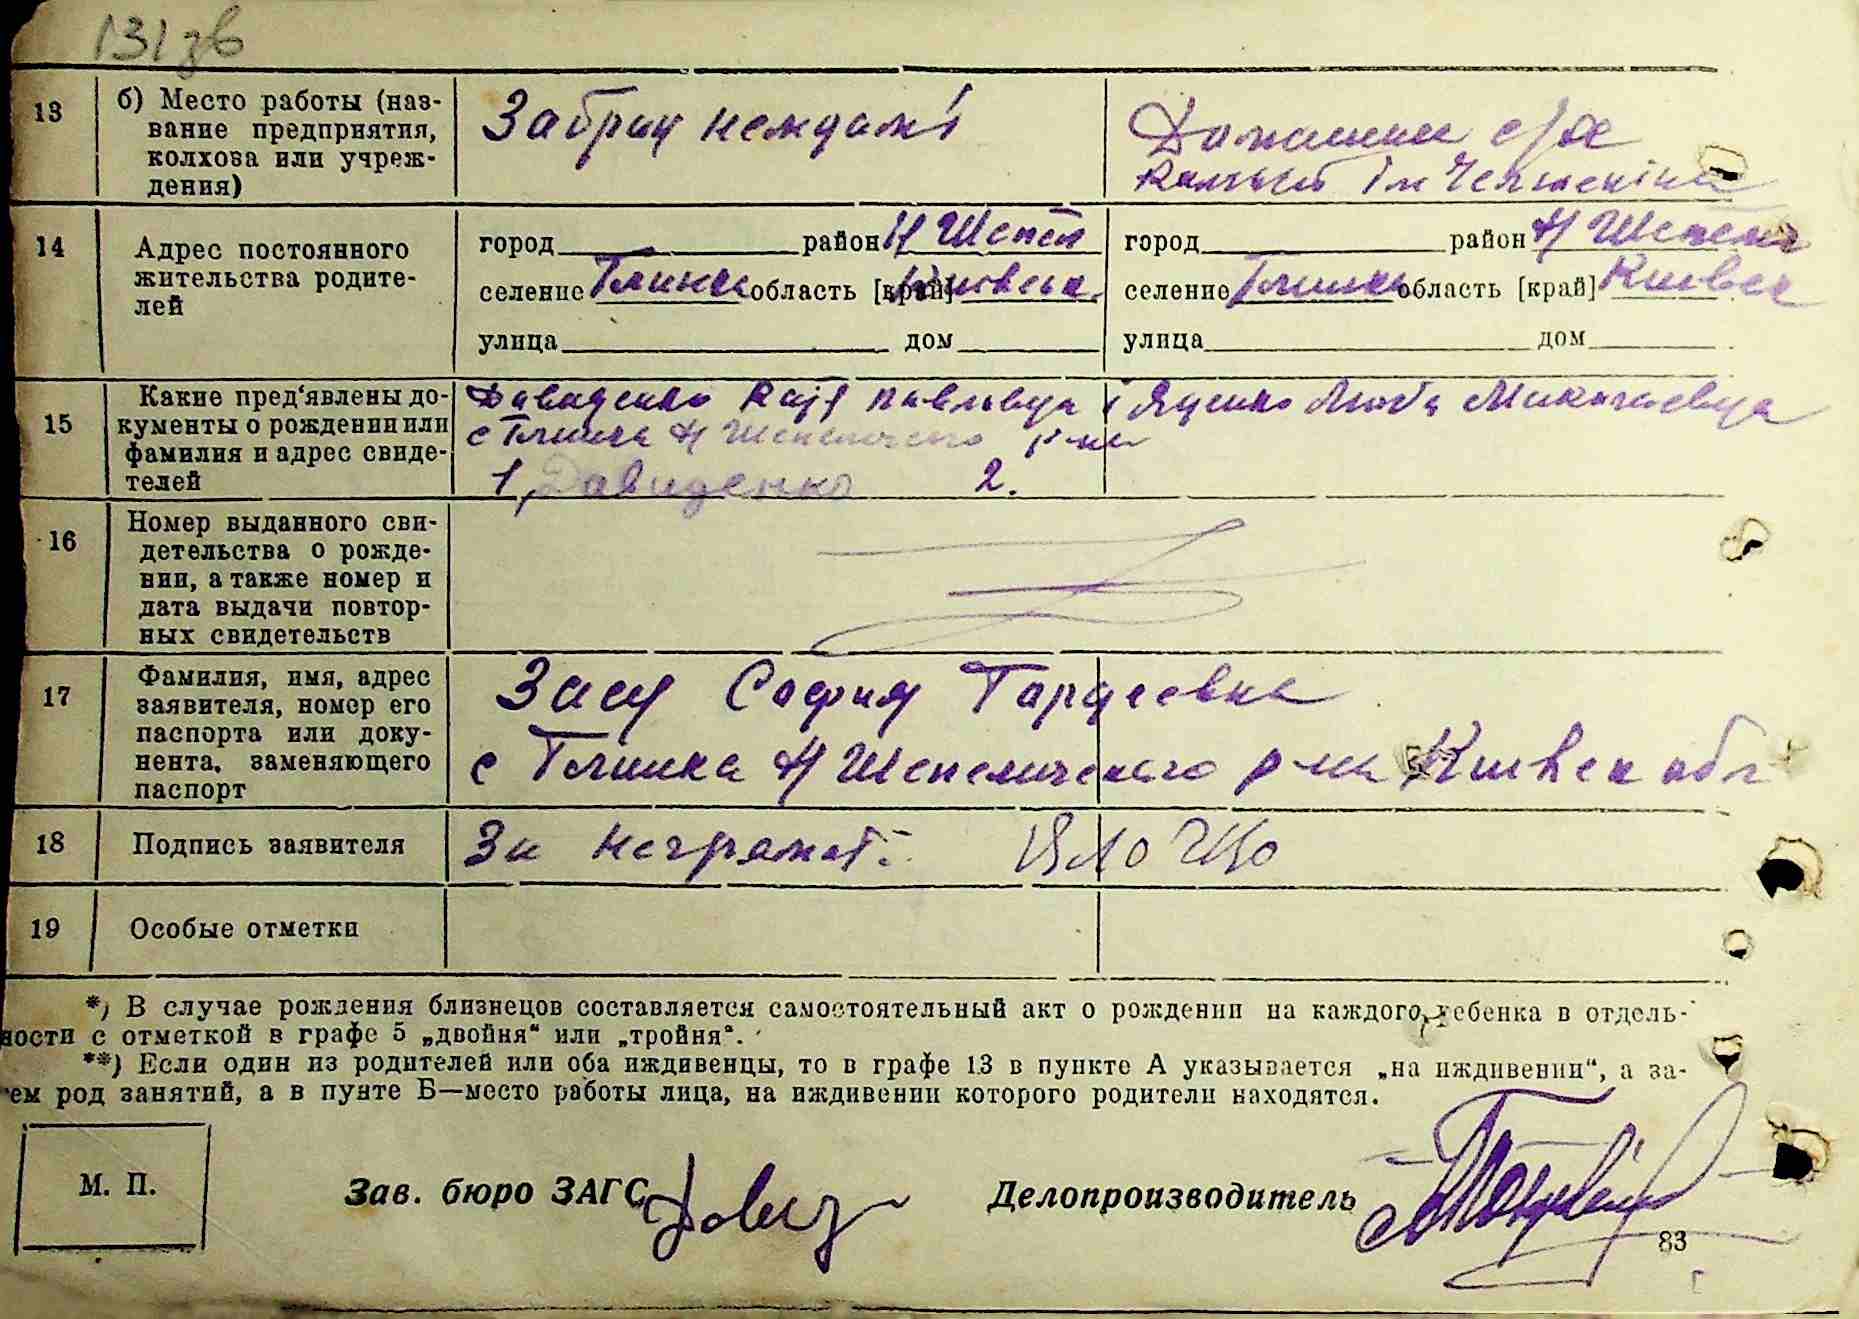 131 зв
13
б) Место работы (наз-
вание предприятия,
колхоза или учреж-
дения)
14
Адрес постоянного
жительства родите-
лей
город район Н Шепел
селение Глинка область [край] Киевск.
улица дом
город район Н Шепел
селение Глинка область [край] Киевск
улица дом
15
Какие пред'явлены до-
кументы о рождении или
фамилия и адрес свиде-
телей
Давиденко павловна і Яценко Люба Миколаевна
с Глинка Н Шепеличского р-на
1, Давиденко 2.
16
Номер выданного сви-
детельства о рожде-
нии, а также номер и
дата выдачи повтор-
ных свидетельств
17
Фамилия, имя, адрес
заявителя, номер его
паспорта или доку-
мента, заменяющего
паспорт
София Гордеевна
с Глинка Н Шепеличского р-на Киевск обл
18
Подпись заявителя
За неграмот.
19
Особые отметки
*) В случае рождения близнецов составляется самостоятельный акт о рождении на каждого ребенка в отдель-
ности с отметкой в графе 5 „двойня“ или „тройня“.
**) Если один из родителей или оба иждивенцы, то в графе 13 в пункте А указывается „на иждивении“, а за-
ем род занятий, а в пункте Б—место работы лица, на иждивении которого родители находятся.
М. П.
Зав. бюро ЗАГС
Делопроизводитель
83